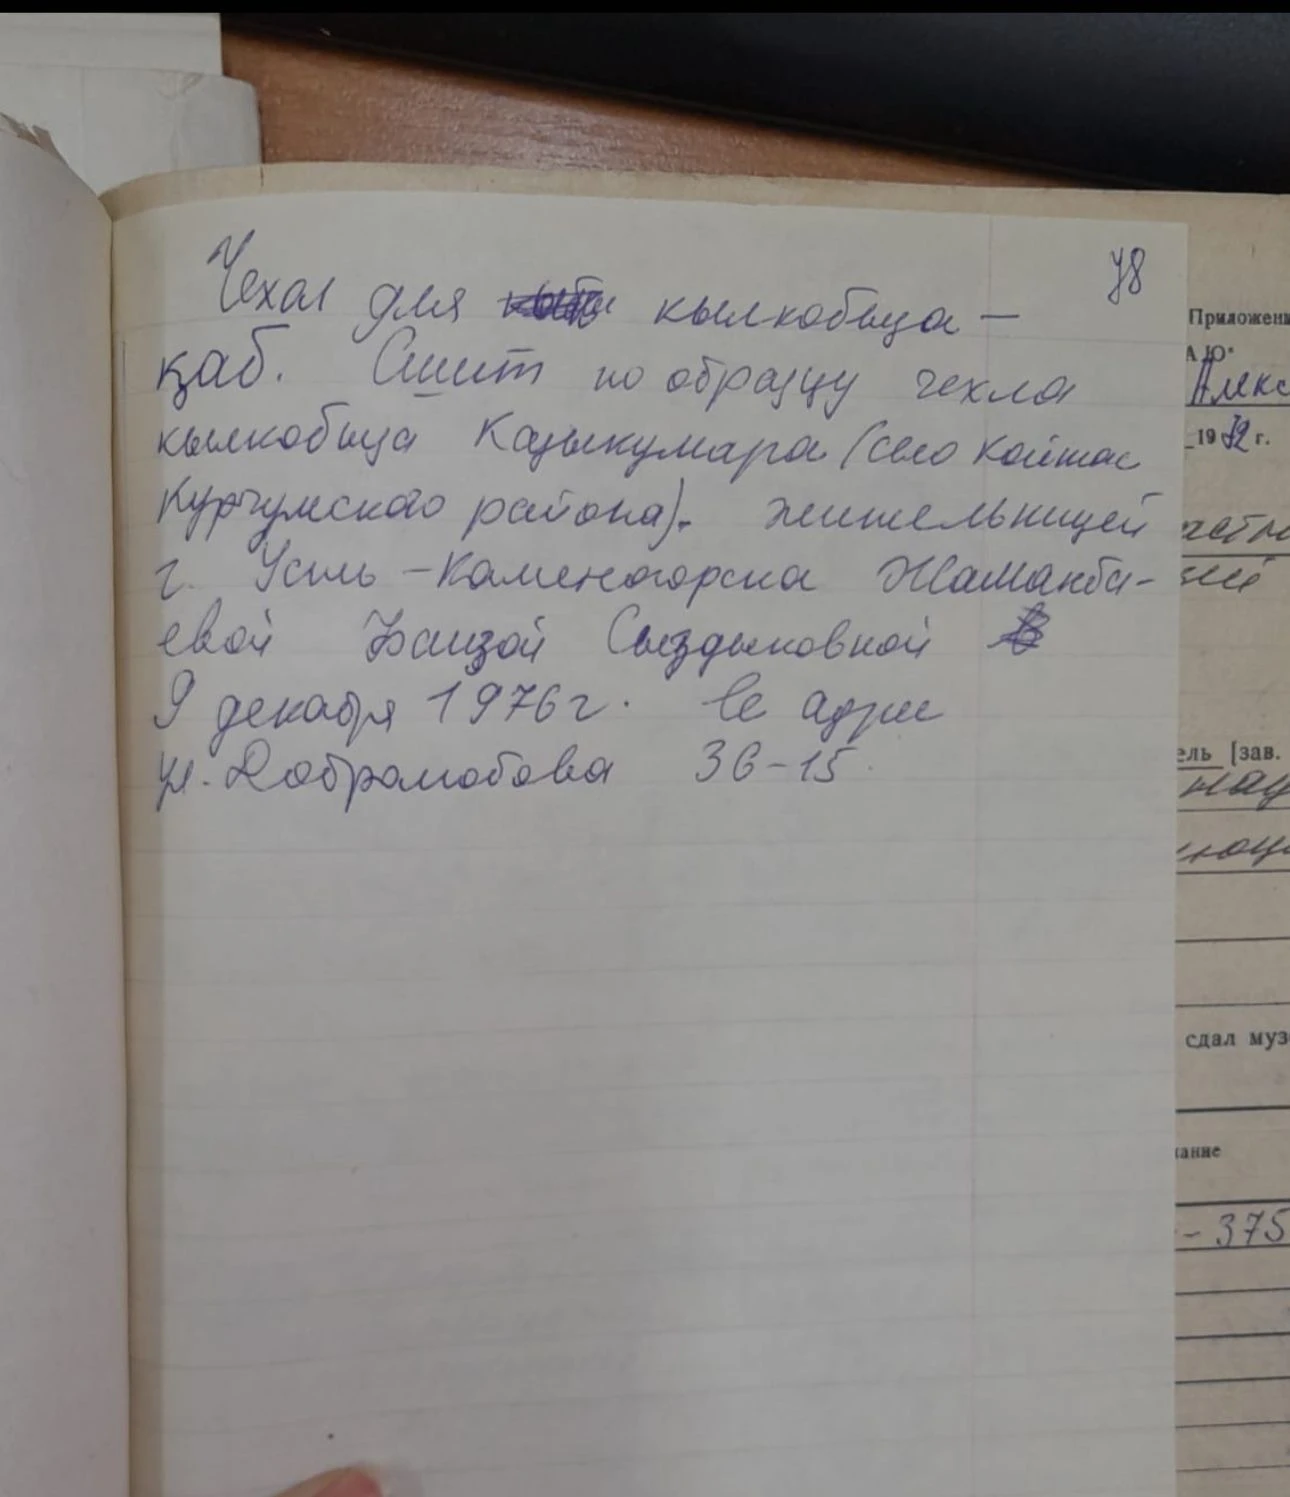 78
Чехол для кылкобыза —
қаб. Сшит по образцу чехла
кылкобыза Казыкумара (село Койтас
Курчумского района). жительницей
г. Усть-Каменогорска Жаманба-
евой Сыздыковной
9 декабря 1976 г. Ее адрес
ул. Добролюбова 36-15.
Приложени
А.Ю"
Алекс
1972 г.
ель [зав.
сдал муз
ание
- 375